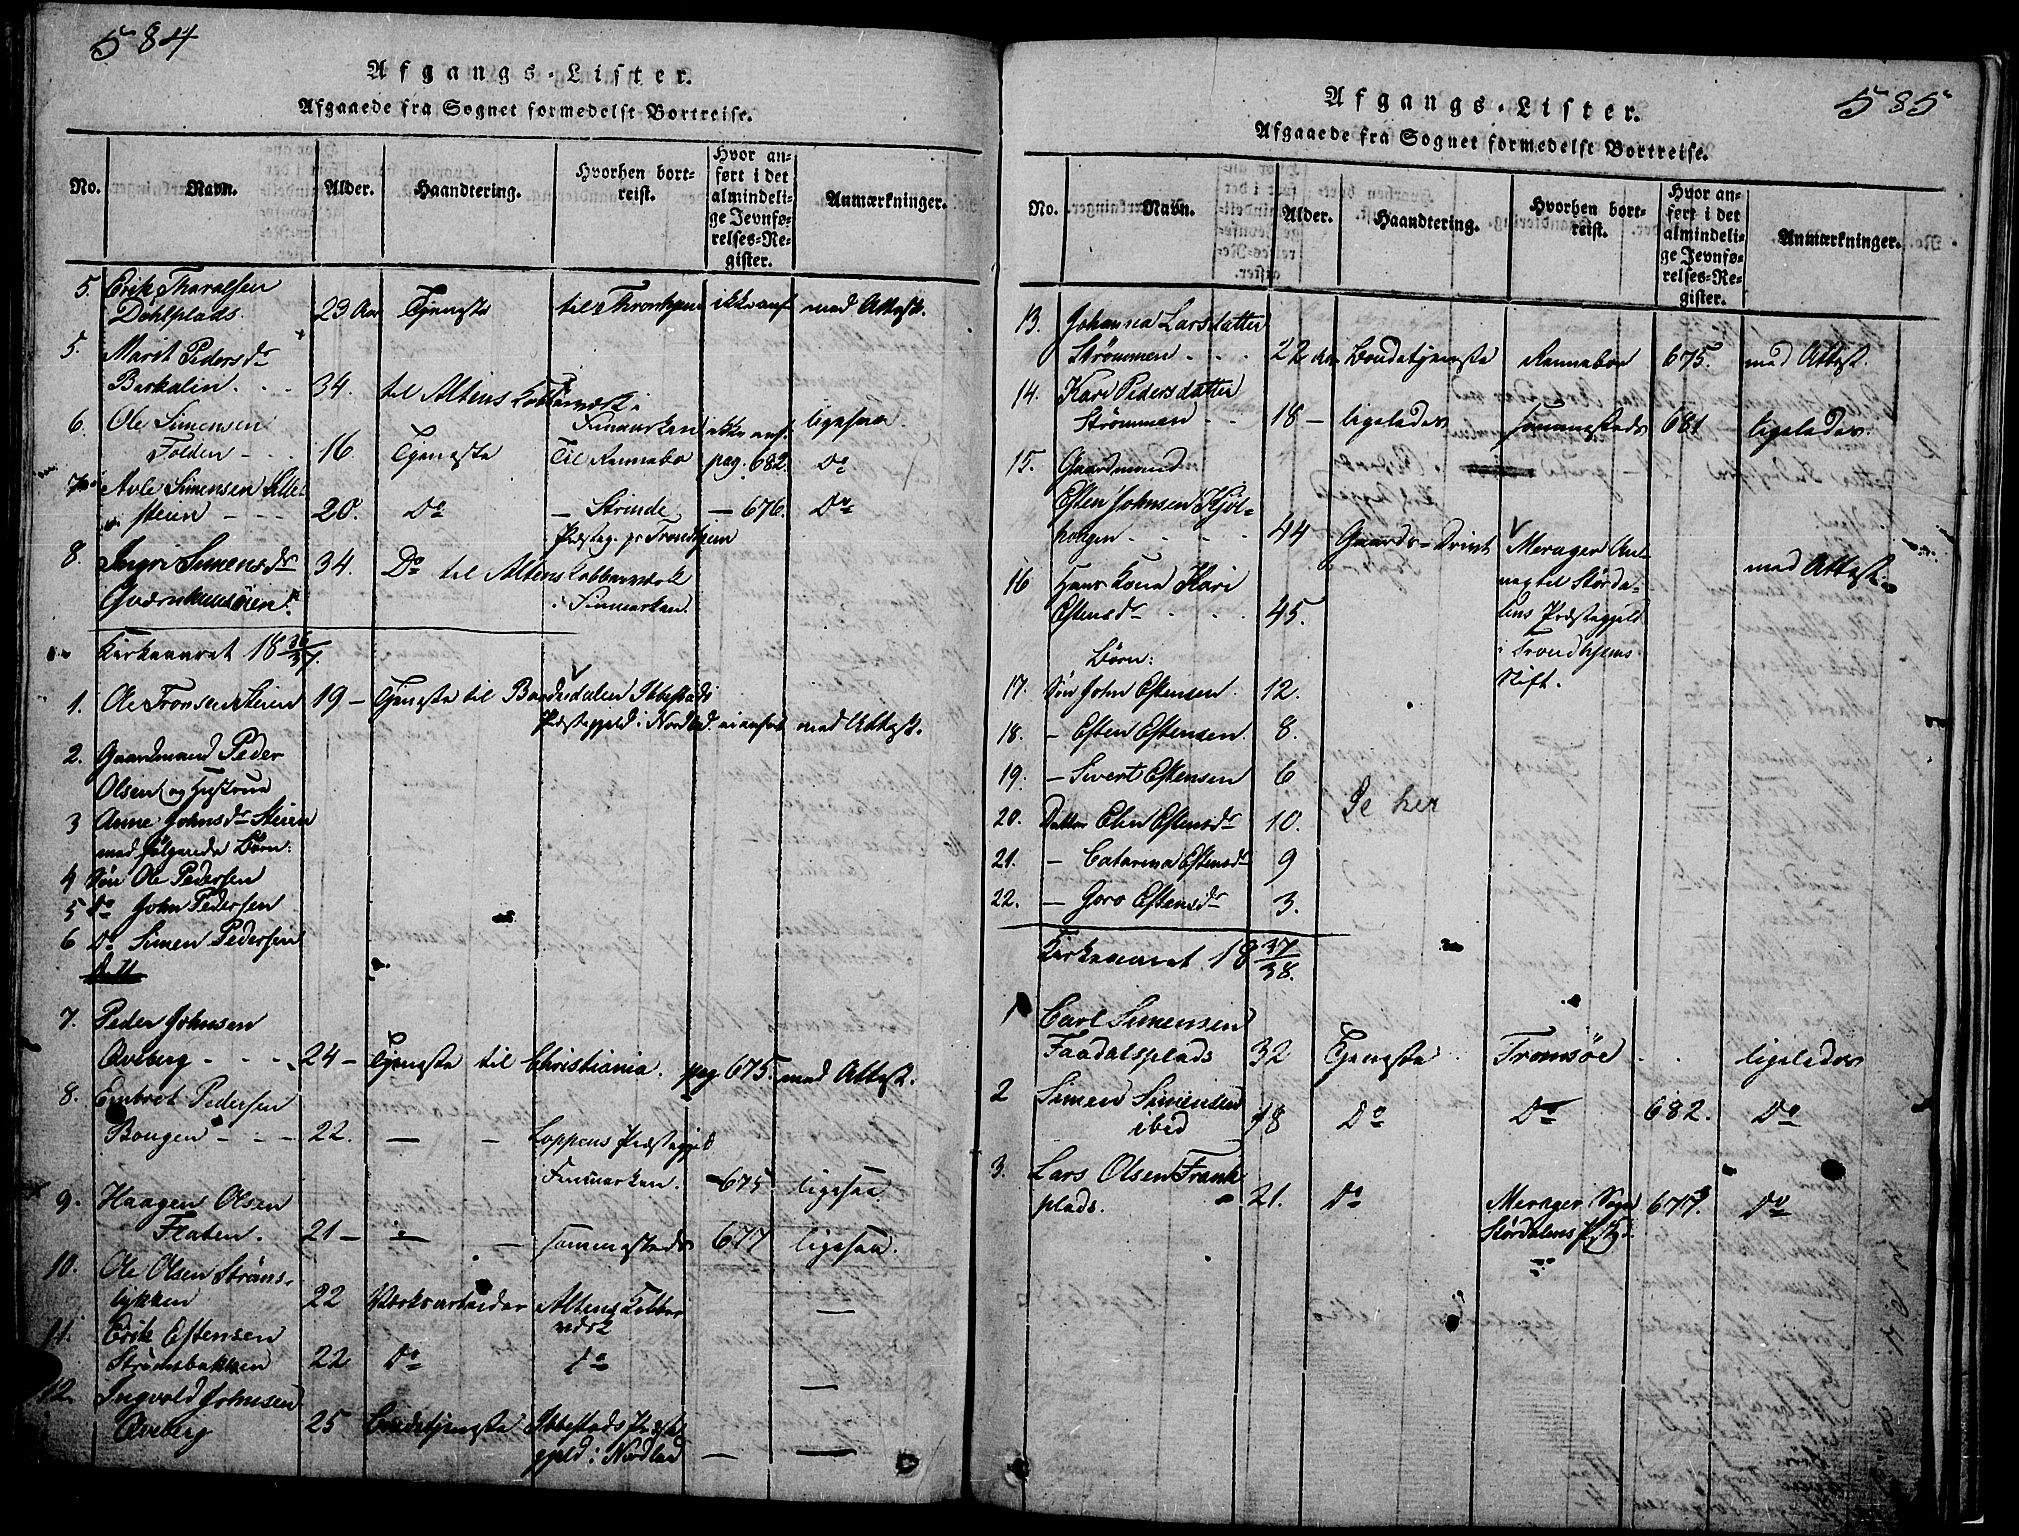 584
Afgangs-Lister.
Afgaaede fra Sognet formedelst Bortreise.
No. Navn. Alder. Haandtering. Hvorhen bortreist. Hvor anført i det almindelige Jevnførelses-Register. Anmærkninger.
5. Erik Tharalsen
Døhlplads. 23 Aar Tjeneste til Throndhjem ikke anf. med Attest.
5. Marit Pedersdr
Barkalin. - - 34. til Altens Kobberværk i
6. Ole Simensen Finmarken ikke anf. ligesaa
Folden - - 16. Tjeneste Til Rennebo pag. 682. Do
7. Simensen
steien - - - 20. Do - Strinde - 676. Do
Præsteg. pr Trondhjem
8. Ingri Simensdr 34. Do til Altens Kobberværk
i Finmarken.
Kirkeaaret 1836/37.
1. Ole Tronsen Steien 19 - Tjeneste til Bardudalen Ibbestads
Præstegjeld i Nordld. ei anført med Attest.
2. Gaardmand Peder
Olsen og Hustrue
3 Anne Johnsdr Steien
med følgende Børn:
4 Søn Ole Pedersen
5 Do John Pedersen
6 Do Simen Pedersen
7. Peder Johnsen
Aveberg - - - 24 - Tjeneste til Christiania. pag 675. med Attest.
8. Embret Pedersen
Bougen - - - 22. - - Loppens Præstegjeld
Finmarken. - 675 ligesaa
9. Haagen Olsen
Floten. 21 - - - sammesteds 677 ligesaa.
10. Ole Olsen Strøms-
lykken 22 Værksarbeider Altens Kobber
værk -
11. Erik Estensen
Strømsbakken 22 Do Do -
12. Ingvold Johnsen
Aveberg 25 Bondetjeneste Ibbestads Præste
gjeld i Nordland - -
585
Afgangs-Lister.
Afgaaede fra Sognet formedelst Bortreise.
No. Navn. Alder. Haandtering. Hvorhen bortreist. Hvor anført i det almindelige Jevnførelses-Register. Anmærkninger.
13. Johanna Larsdatter
Strømmen - - - 22 Aar Bondetjeneste Renneboe 675. med Attest.
14. Kari Pedersdatter
Strømmen - - 18 - ligeledes sammesteds 681 ligeledes.
15. Gaardmand
Esten Johnsen Kjøl-
haugen - - - - 44 Gaards-Drivt Merager An-
nex til Størda- med Attest.
16 Hans Kone Kari
Estensdr - - - 45. lens Præstegjeld
i Trondhjems
Børn: Stift.
17. Søn John Estensen. 12.
18. - Esten Estensen. 8.
19. - Sivert Estensen 6
Se her
20. Datter Elen Estensdr 10.
21. - Catarina Estensdr 9
22. - Goro Estensdr 3.
Kirkeaaret 1837/38.
1 Carl Simensen
Faadalsplads 32 Tjeneste Tromsøe - - ligeledes
2 Simen Simensen
ibid 18 Do Do 682. Do
3. Lars Olsen Frank
plads. 21. Do Merager Sogn 677. Do
Størdalens Pstgj.